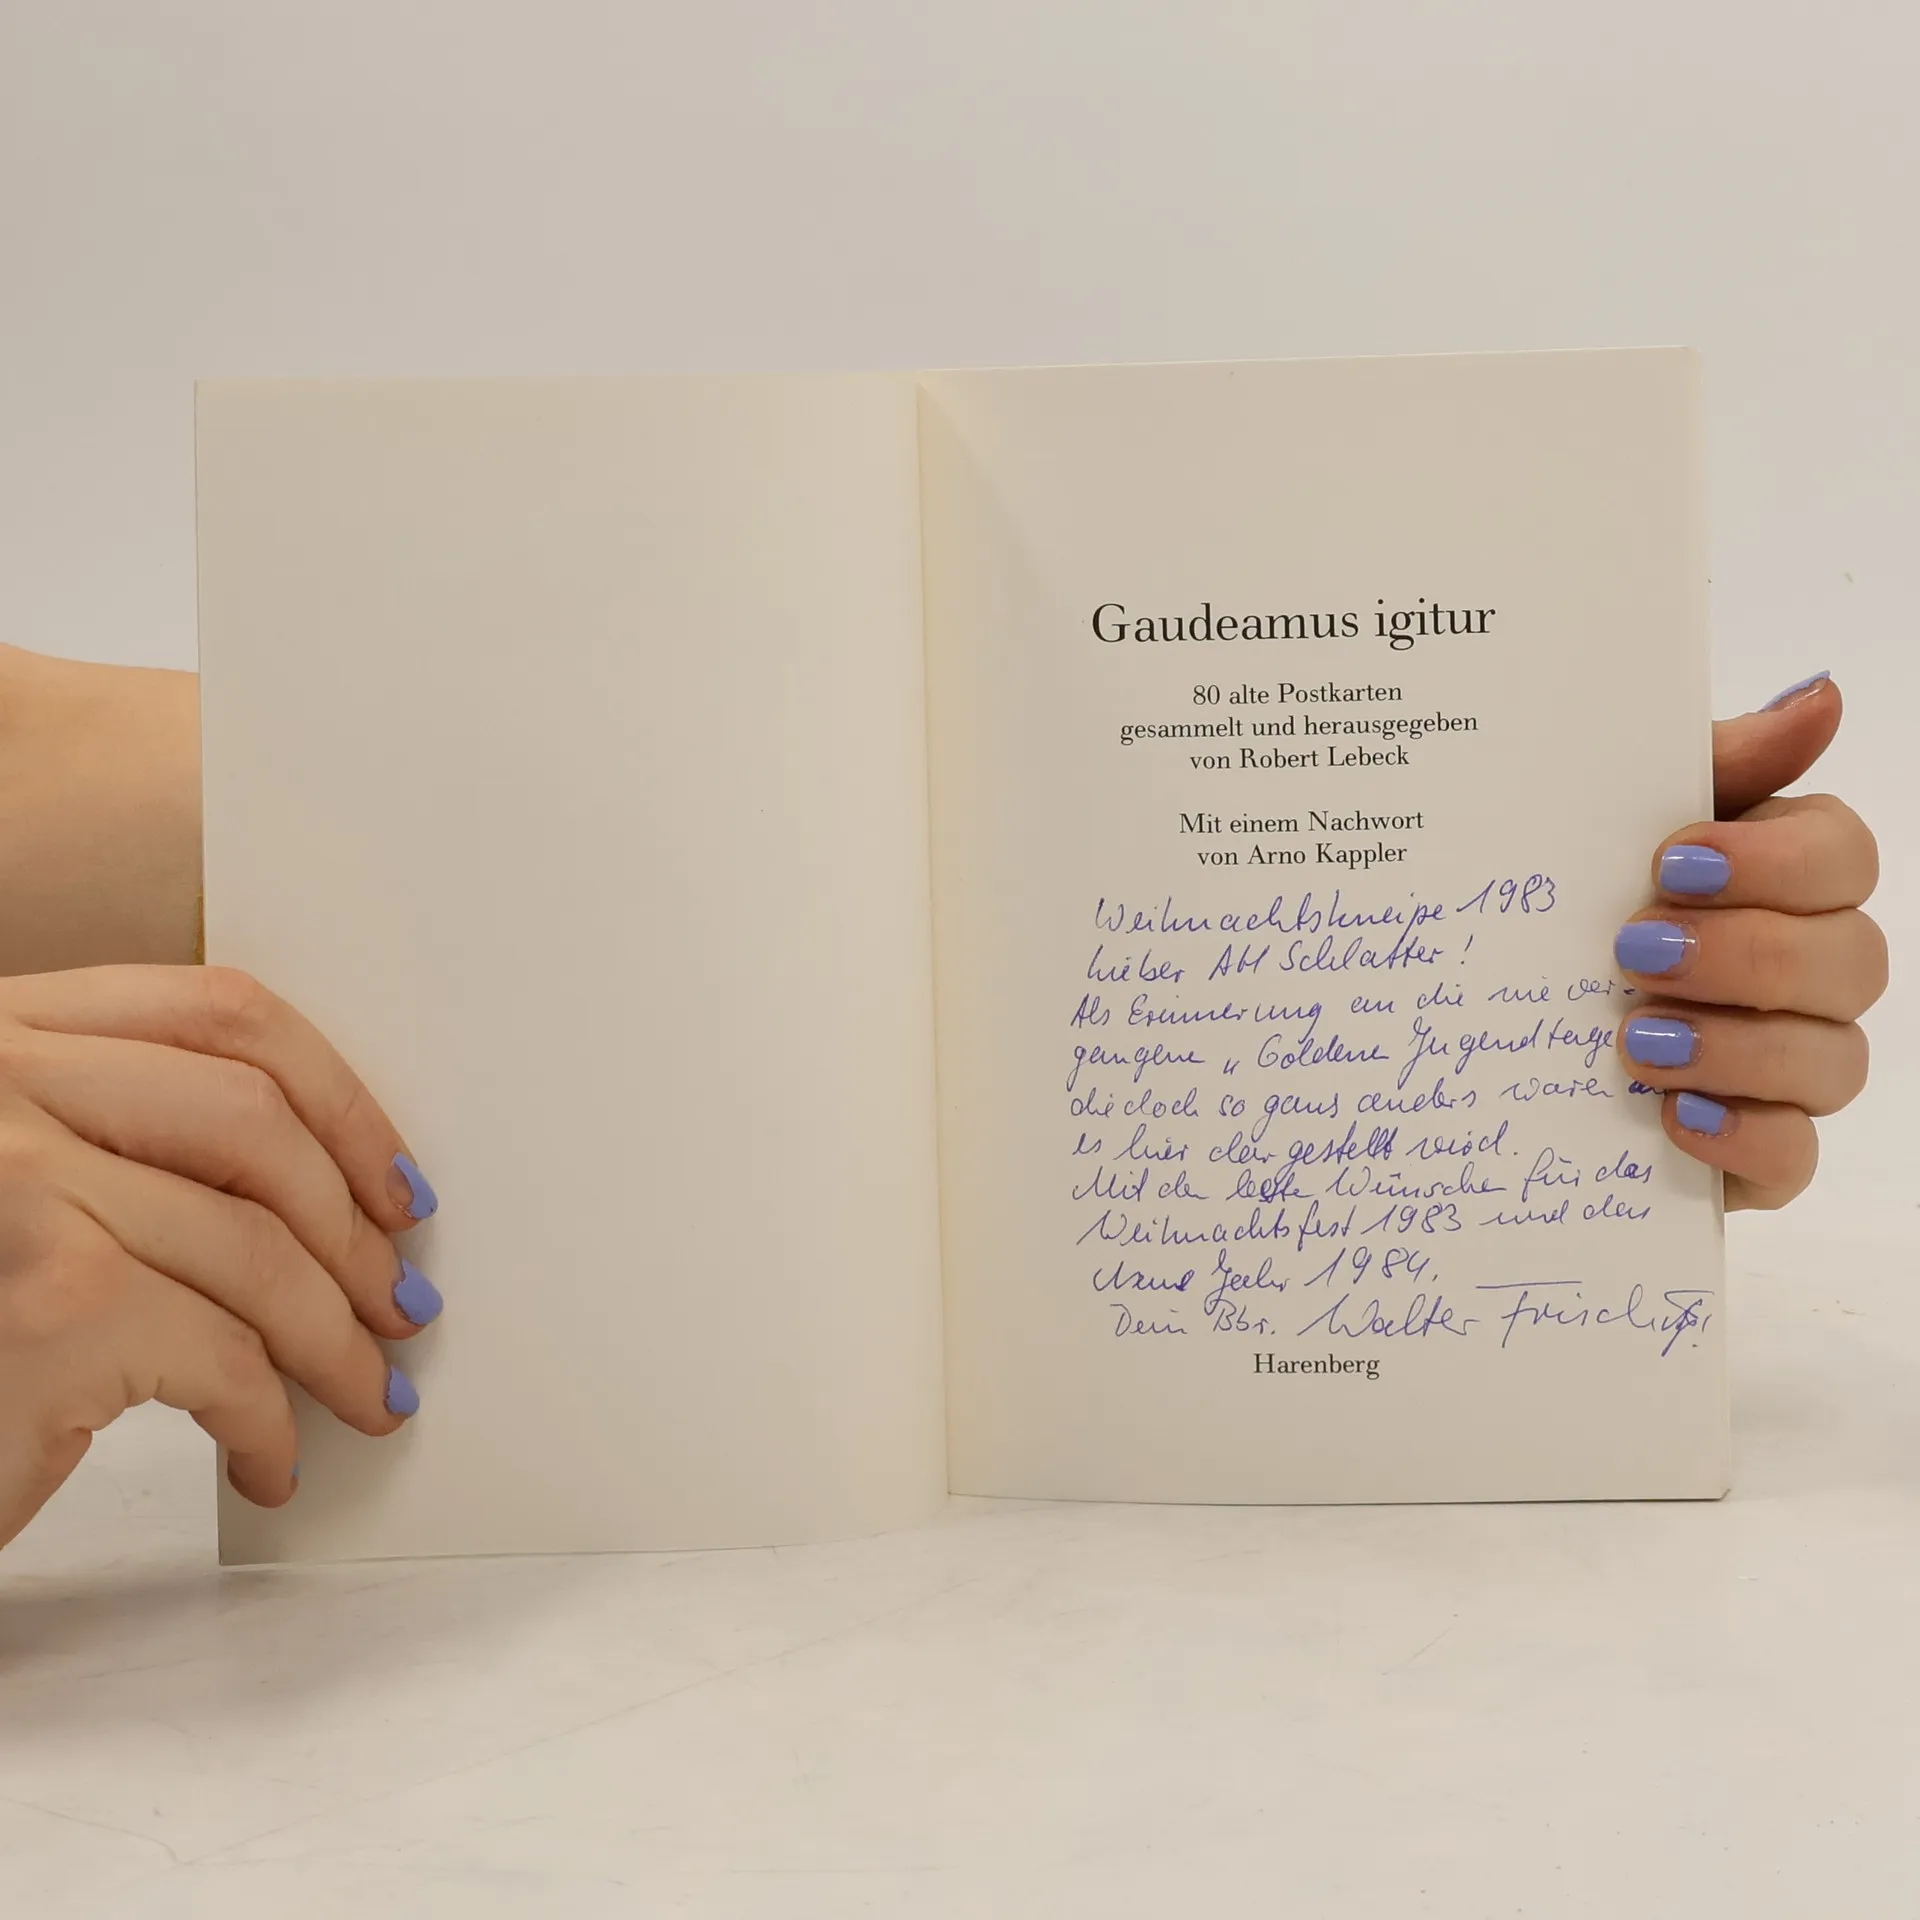 Gaudeamus igitur
80 alte Postkarten
gesammelt und herausgegeben
von Robert Lebeck
Mit einem Nachwort
von Arno Kappler
Weihnachtskneipe 1983
Lieber AH Schlatter!
Als Erinnerung an die nie ver-
gangene „Goldene Jugendtage
die doch so ganz anders waren
es hier dargestellt wird.
Mit den beste Wünschen für das
Weihnachtsfest 1983 und das
Neue Jahr 1984.
Dein Bbr. Walter
Harenberg